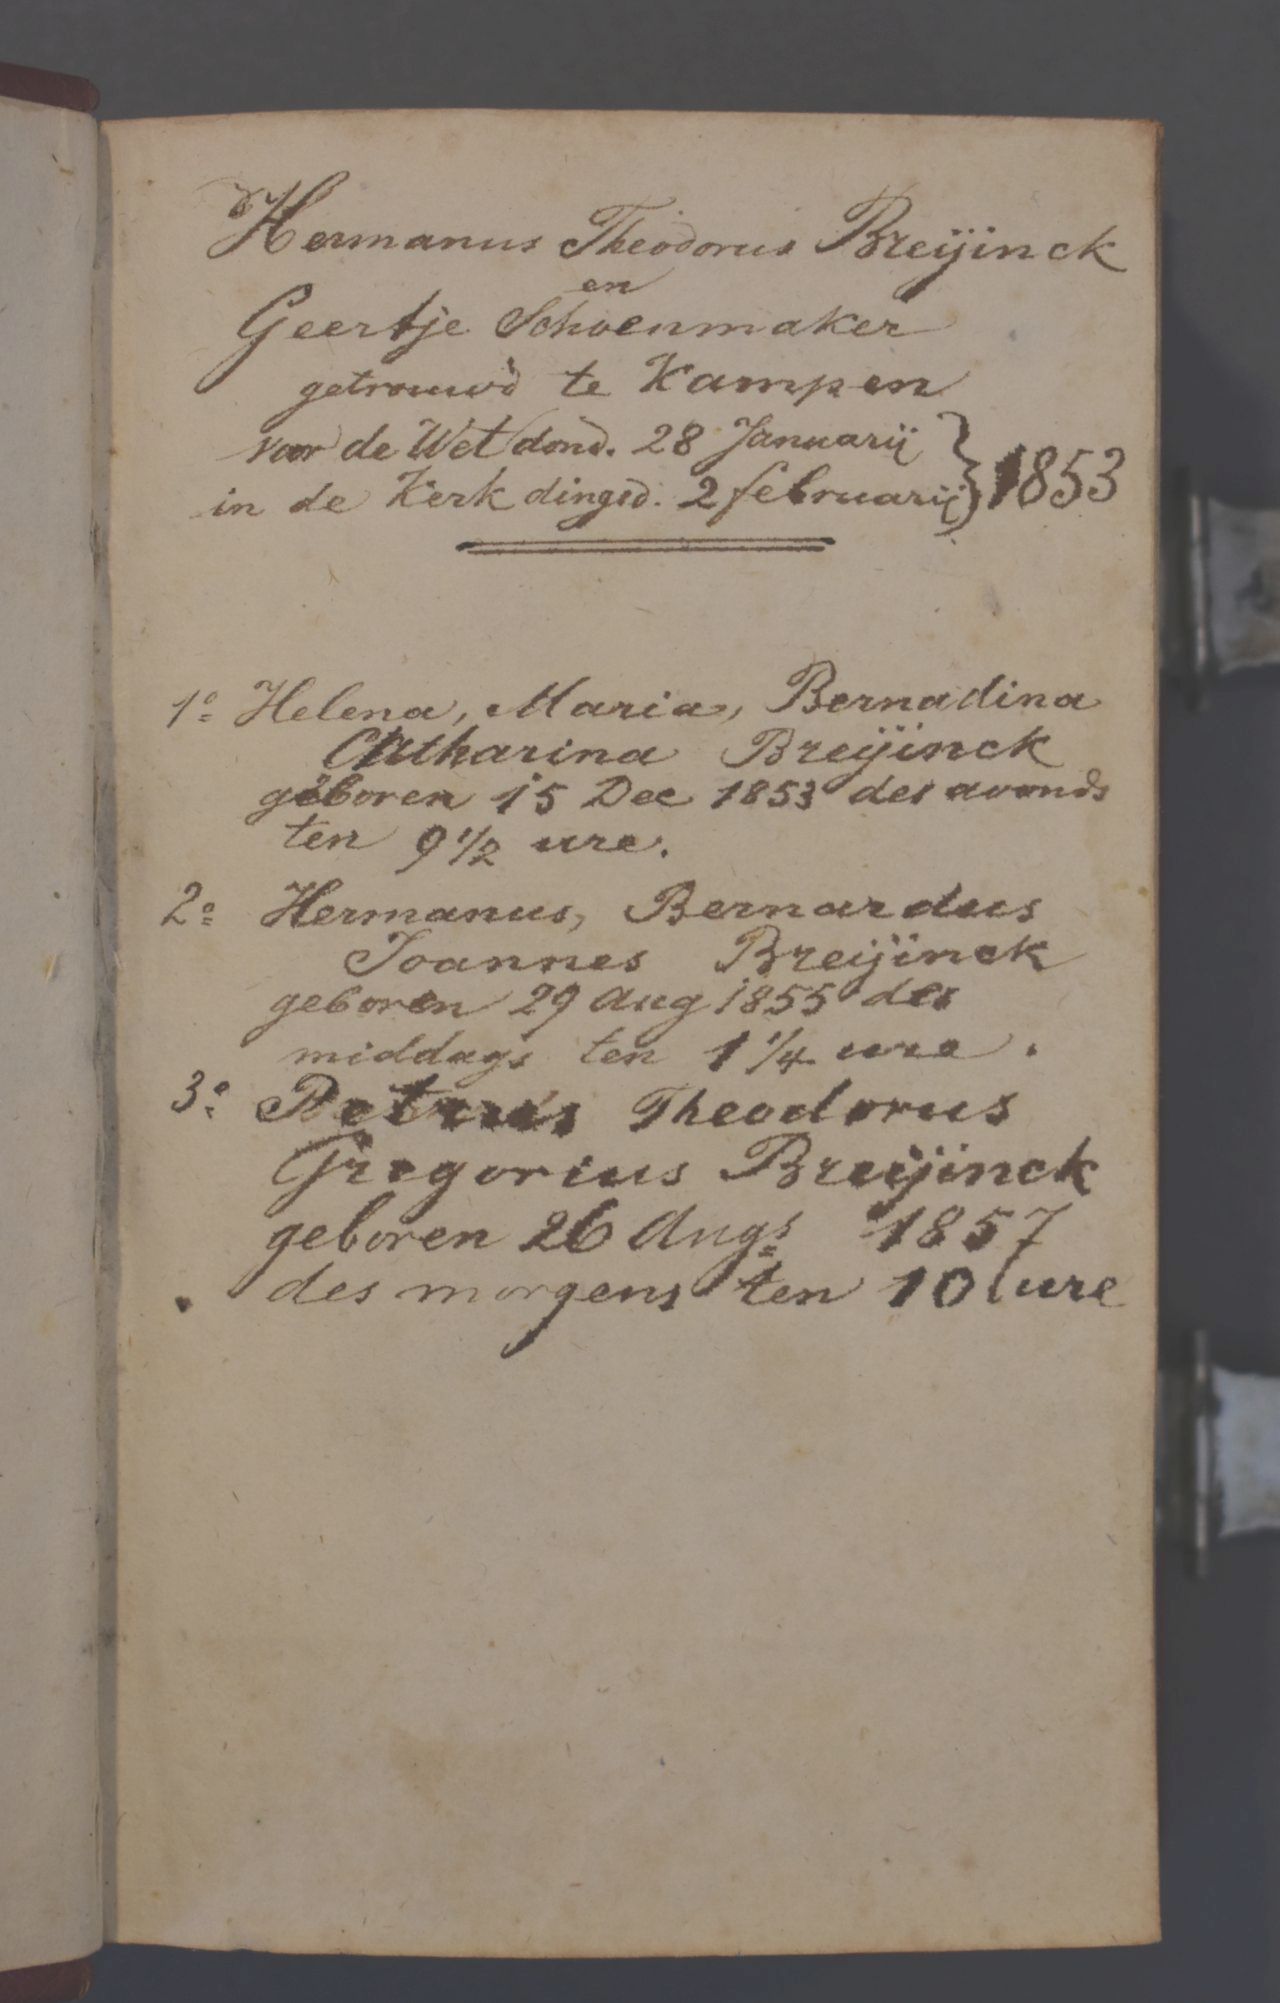 Hermanus Theodorus Breijinck
en
Geertje Schoenmaker
getrouwd te Kampen
voor de Wet dond. 28 Januarij } 1853
in de Kerk dingsd. 2 februarij
1o Helena, Maria, Bernadina
Catharina Breijinck
geboren 15 Dec 1853 des avonds
ten 9 1/2 ure.
2o Hermanus, Bernardus
Joannes Breijinck
geboren 29 Aug 1855 des
middags ten 1 1/4 ure.
3o Petrus Theodorus
Gregorius Breijinck
geboren 26 Augs 1857
des morgens ten 10 ure